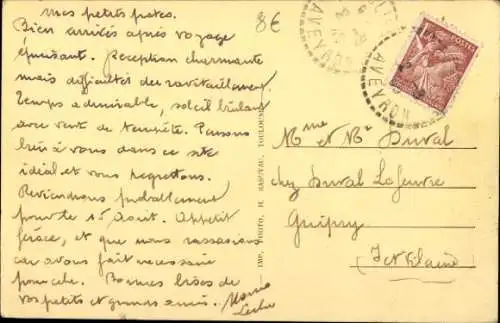 mes petits potes.
Bien arrivés après voyage
épuisant. Réception charmante
mais difficultés du ravitaillement.
Temps admirable, soleil brûlant
avec vent de tempête. Pensons
bien à vous dans ce site
idéal et vous regrettons.
Reviendrons probablement
pour le 15 Août. Appétit
féroce, et que nous rassasions
car avons fait nécessaire
pour cela. Bonnes bises de
vos petits et grands amis.
8€
AVEYRON
AVEYRON
IMP. PHOTO. TOULOUSE
Mme et Mr Duval
chez Duval Lefeuvre
Guipry
Ille et Vilaine